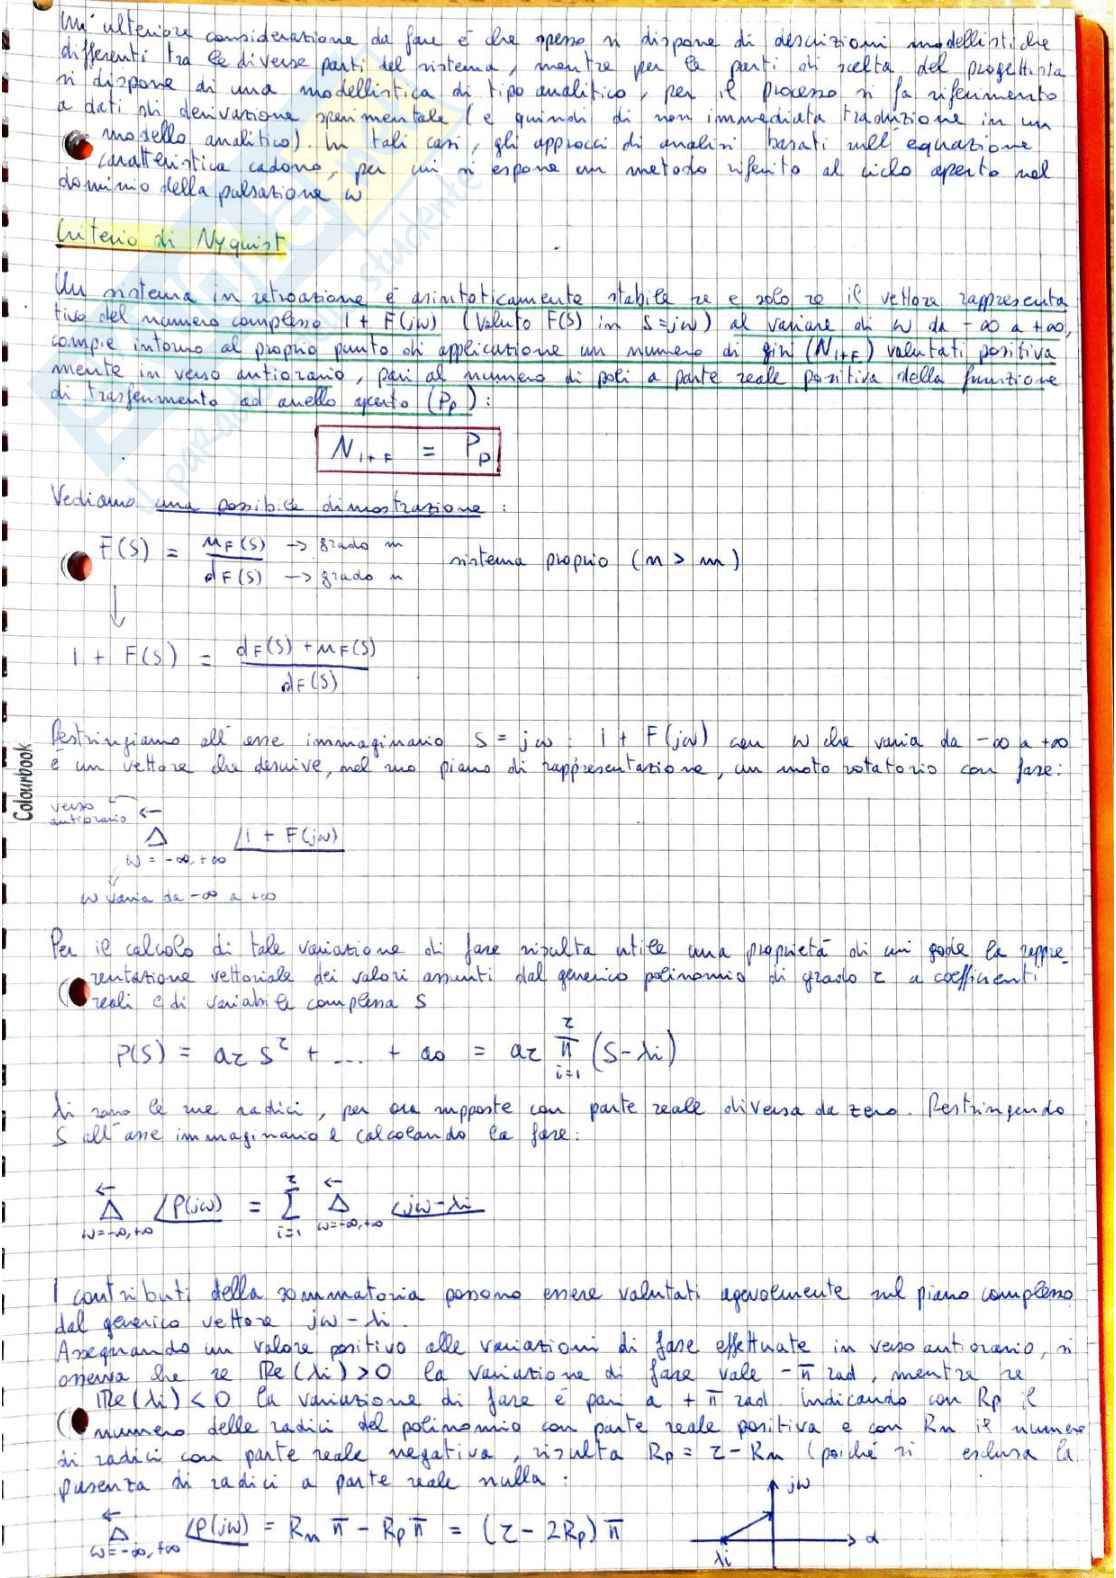 Un'ulteriore considerazione da fare è che spesso si dispone di descrizioni modellistiche
differenti tra le diverse parti del sistema, mentre per le parti di scelta del progettista
si dispone di una modellistica di tipo analitico, per il processo si fa riferimento
a dati di derivazione sperimentale (e quindi di non immediata traduzione in un
modello analitico). In tali casi, gli approcci di analisi basati sull'equazione
caratteristica cadono, per cui si espone un metodo riferito al ciclo aperto nel
dominio della pulsazione ω
Criterio di Nyquist
Un sistema in retroazione è asintoticamente stabile se e solo se il vettore rappresenta
tivo del numero complesso 1 + F(jω) (valuto F(S) in S=jω) al variare di ω da -∞ a +∞,
compie intorno al proprio punto di applicazione un numero di giri (N1+F) valutati positiva
mente in verso antiorario, pari al numero di poli a parte reale positiva della funzione
di trasferimento ad anello aperto (Pp):
N1+F = Pp
Vediamo una possibile dimostrazione:
F(S) = nF(S) → grado m / dF(S) → grado n   sistema proprio (n > m)
↓
1 + F(S) = dF(S) + nF(S) / dF(S)
Restringiamo all'asse immaginario S = jω : 1 + F(jω) con ω che varia da -∞ a +∞
è un vettore che descrive, nel suo piano di rappresentazione, un moto rotatorio con fase:
verso
antiorario ←
Δ ω=-∞,+∞ ∠1 + F(jω)
ω varia da -∞ a +∞
Per il calcolo di tale variazione di fase risulta utile una proprietà di cui gode la rappre-
sentazione vettoriale dei valori assunti dal generico polinomio di grado r a coefficienti
reali e di variabile complessa S
P(S) = ar S^r + ... + a0 = ar π i=1 r (S-λi)
λi sono le sue radici, per ora supposte con parte reale diversa da zero. Restringendo
S all'asse immaginario e calcolando la fase:
← Δ ω=-∞,+∞ ∠P(jω) = Σ i=1 r ← Δ ω=-∞,+∞ ∠jω-λi
I contributi della sommatoria possono essere valutati agevolmente sul piano complesso
dal generico vettore jω-λi.
Assegnando un valore positivo alle variazioni di fase effettuate in verso antiorario, si
osserva che se Re(λi)>0 la variazione di fase vale -π rad, mentre se
Re(λi)<0 la variazione di fase è pari a +π rad. Indicando con Rp il
numero delle radici del polinomio con parte reale positiva e con Rn il numero
di radici con parte reale negativa, risulta Rp = r - Rn (poiché si esclusa la
presenza di radici a parte reale nulla:
← Δ ω=-∞,+∞ ∠P(jω) = Rn π - Rp π = (r - 2Rp) π
jω
α
λi
Colourbook
studente